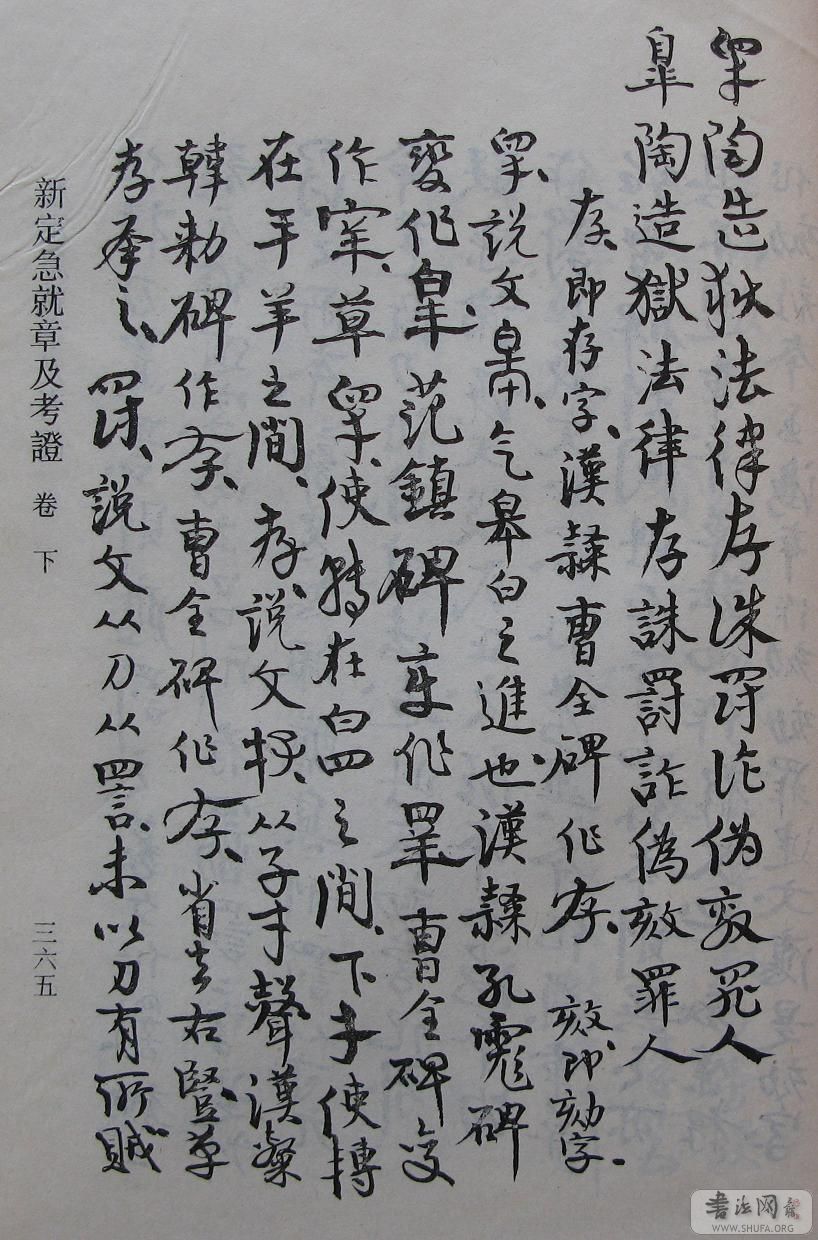 皋陶造獄法律存誅罰詐偽效罪人
皋陶造獄法律存誅罰詐偽效罪人
存、即存字、漢隸曹全碑作存、效、即劾字.
皋、說文皋、气皋白之進也、漢隸孔彪碑
變作皋、范鎮碑变作睪曹全碑变
作睾、草皋、使轉在白四之間、下使轉
在羊之間、存、說文、从子才聲漢
韓勅碑作存、曹全碑作存、省去右豎草
存之、罰、說文从刀从詈、未以刀有所賊
新定急就章及考證 卷下
三六五
書法网
WWW.SHUFA.ORG